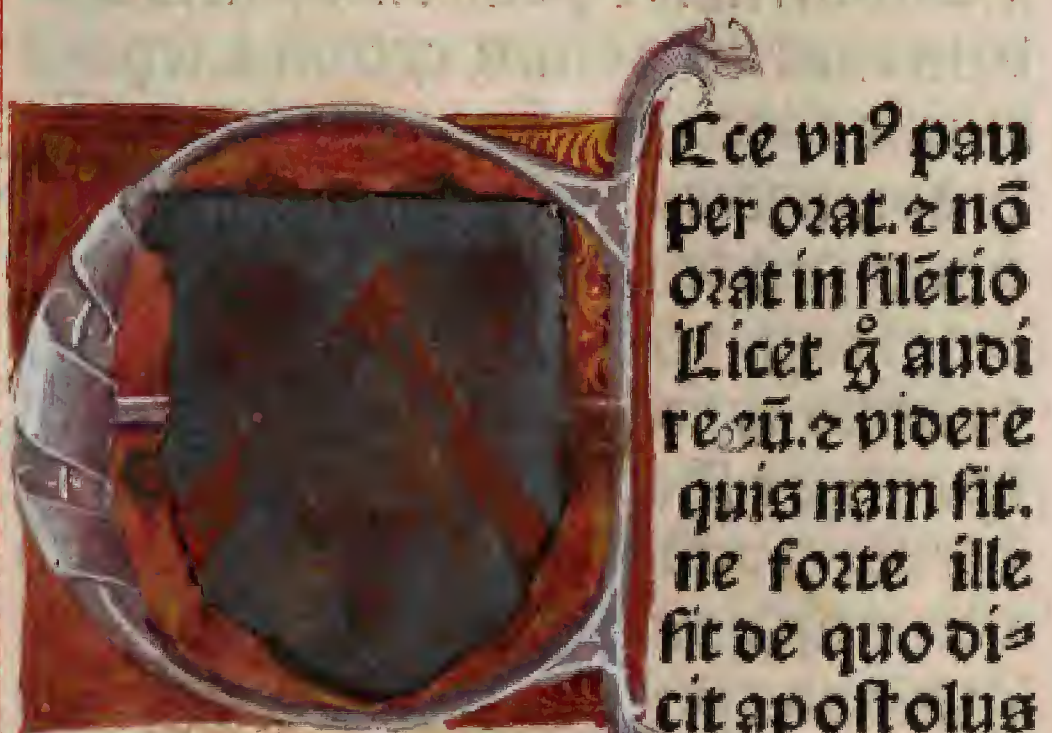 Ecce vnꝰ pau
per orat. ⁊ nō
orat in ſilētio
Licet gͦ audi
re eū. ⁊ videre
quis nam ſit.
ne forte ille
ſit de quo di⸗
cit apoſtolus